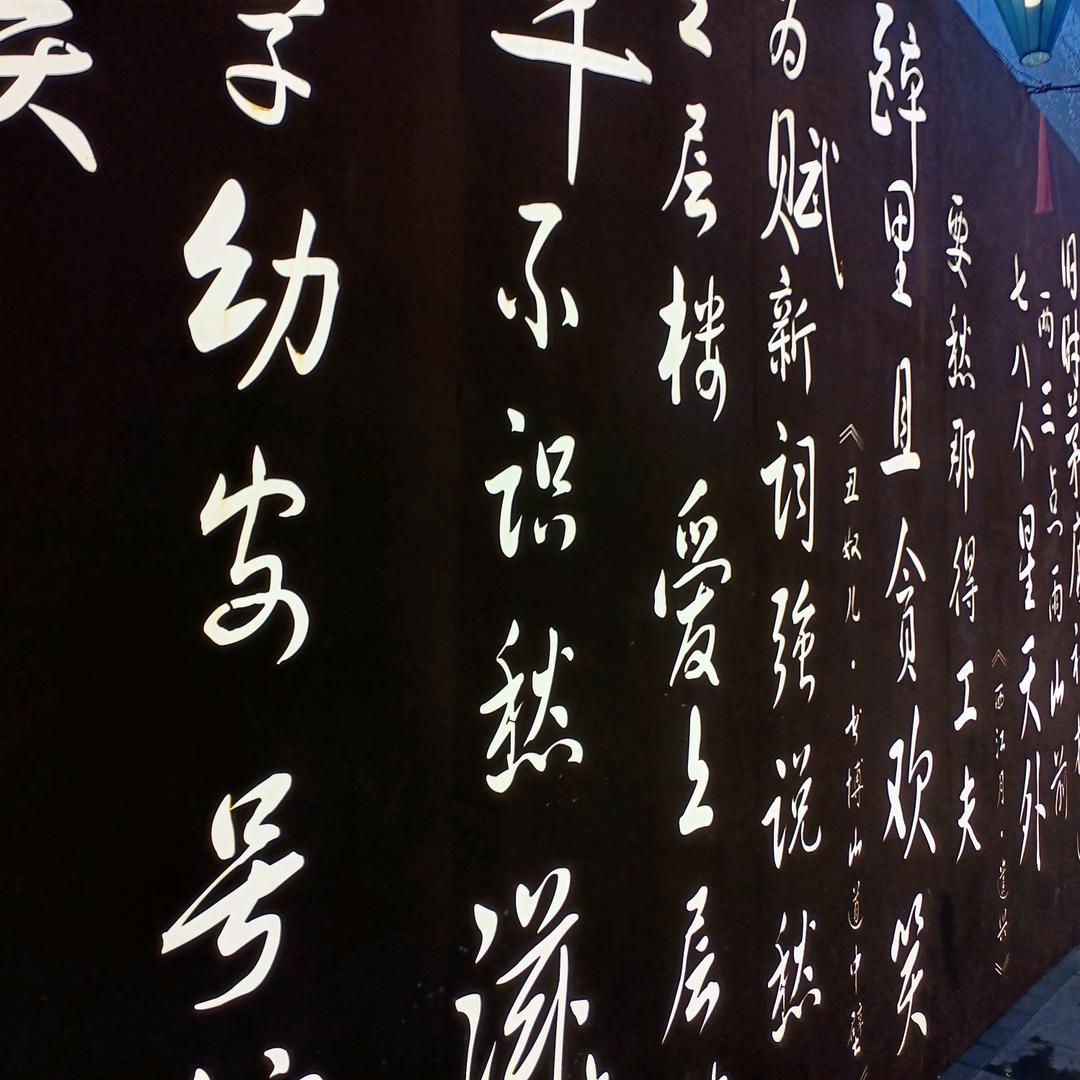 字幼安号
年不识愁滋
上层楼爱上层
为赋新词强说愁
《丑奴儿·书博山道中壁
醉里且贪欢笑
要愁那得工夫
《西江月·遣兴》
七八个星天外
两三点雨山前
旧时茅店社林